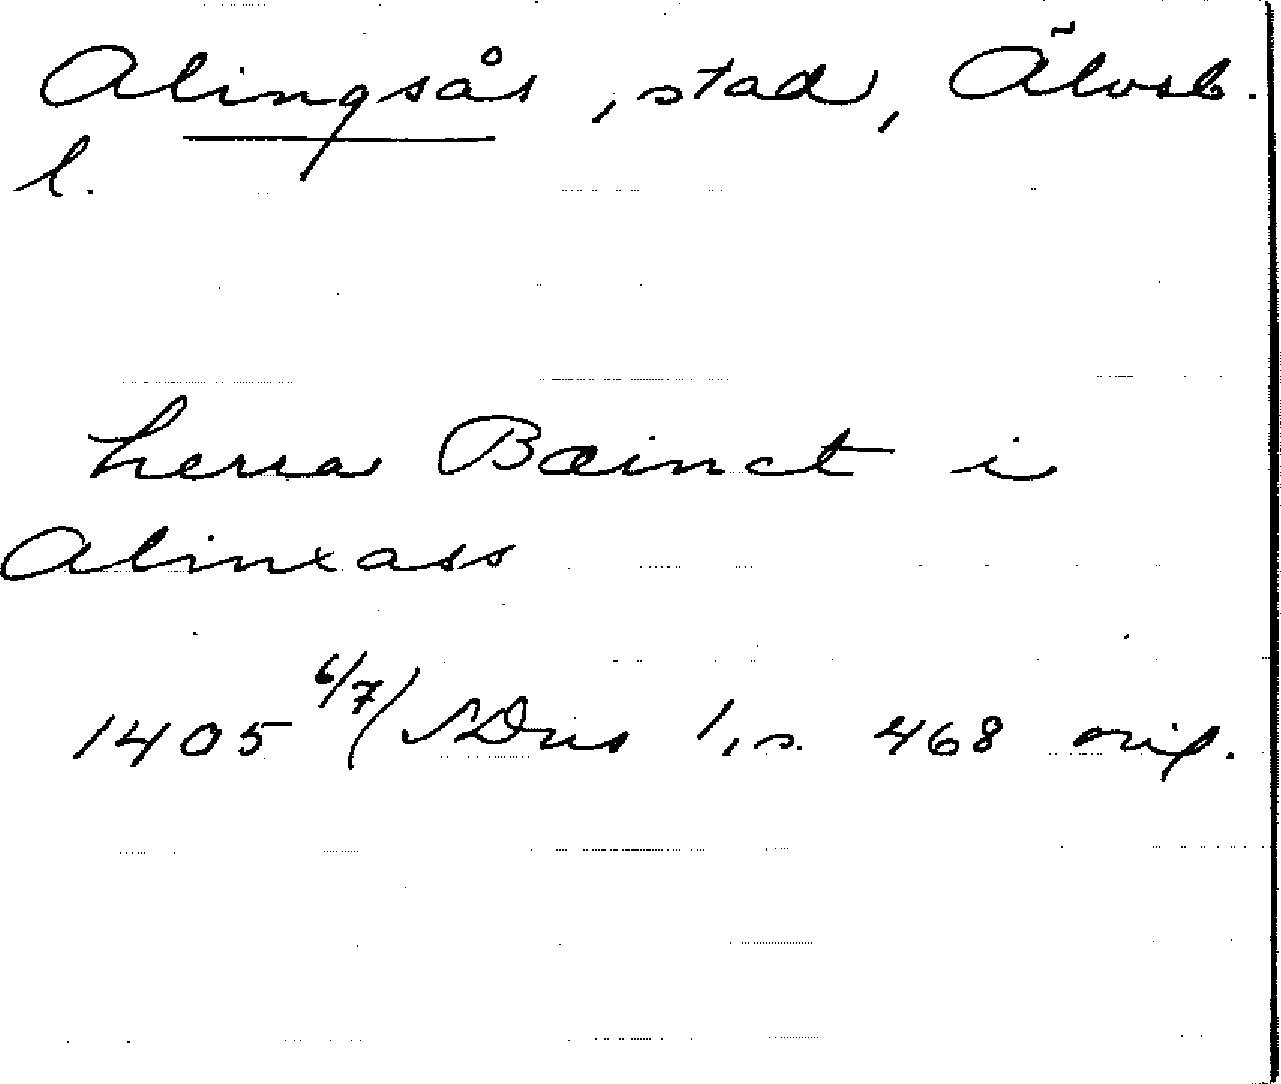 Alingsås, stad, Älvsb.
l.
herra Bæinct i
Alinxass
1405 6/7/ SDns 1, s. 468 orig.